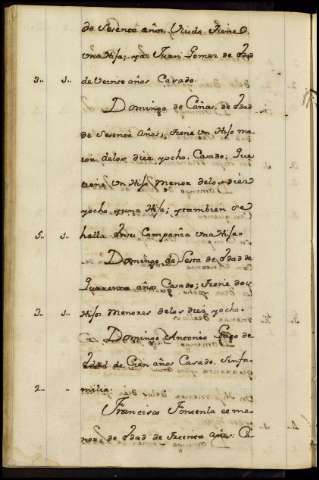 de Sesenta años, Viuda, tiene
una Hija; y à Juan Gomez de Edad
3.. s. de veinte años Casado.
Domingo de Cañas, de Edad
de Sesenta años, tiene un Hijo ma
yor delos diez yocho, Casado, Que
tiene un Hijo Menor delos diez
yocho y una Hija; y tambien se
5.. s. halla Compañia una Hija
Domingo de de Edad de
Quarenta años Casado; tiene dos
3.. s. Hijos Menores delos diez yocho.
Domingo Antonio de
Edad de Cien años Casado sinfa
2.. milia.
Francisco Fontenla es me
nor de Edad de Setenta años, Ca